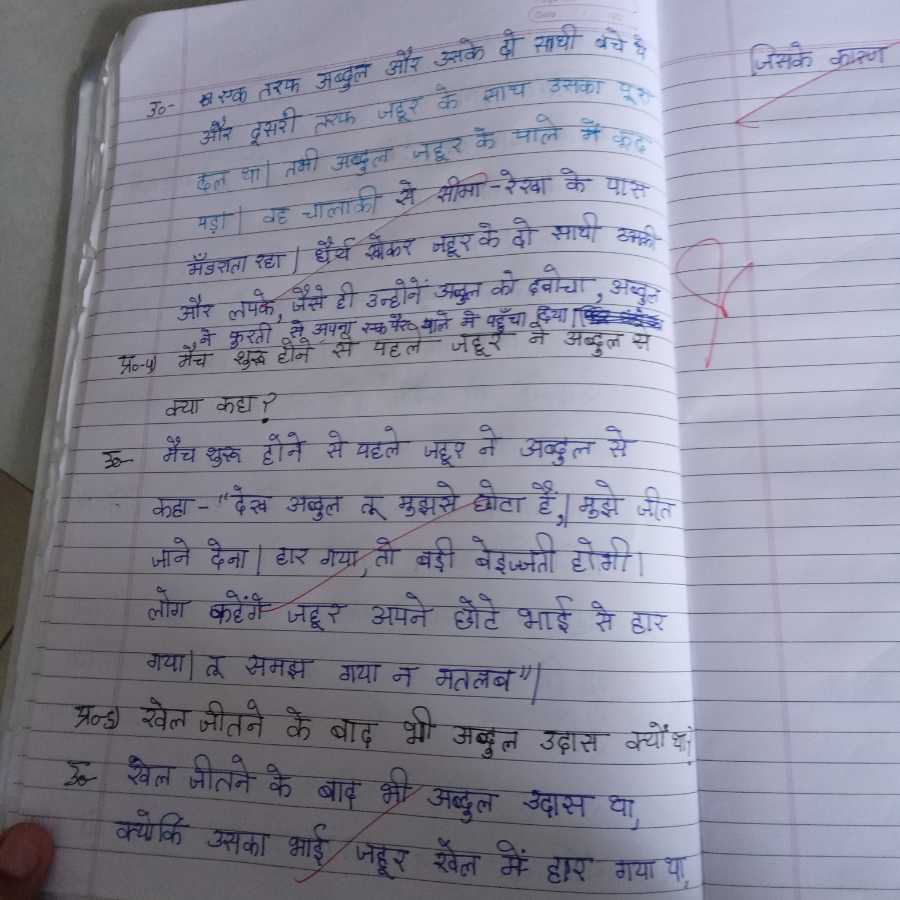 उ०- एक तरफ अब्दुल और उसके दो साथी बचे थे
और दूसरी तरफ जहूर के साथ उसका पूरा
दल था| तभी अब्दुल जहूर के पाले में कूद
पड़ा| वह चालाकी से सीमा-रेखा के पास
मँडराता रहा| धैर्य खोकर जहूर के दो साथी उसकी
और लपके, जैसे ही उन्होनें अब्दुल को दबोचा, अब्दुल
ने फुरती से अपना एक पैर पाले में पहुँचा दिया|
प्र०-4) मैच शुरू होने से पहले जहूर ने अब्दुल से
क्या कहा?
उ०- मैच शुरू होने से पहले जहूर ने अब्दुल से
कहा - "देख अब्दुल तू मुझसे छोटा है,| मुझे जीत
जाने देना| हार गया, तो बड़ी बेइज्जती होगी|
लोग कहेंगें जहूर अपने छोटे भाई से हार
गया| तू समझ गया न मतलब"|
प्र०-5) खेल जीतने के बाद भी अब्दुल उदास क्यों था?
उ०- खेल जीतने के बाद भी अब्दुल उदास था,
क्योकि उसका भाई जहूर खेल में हार गया था,
जिसके कारण